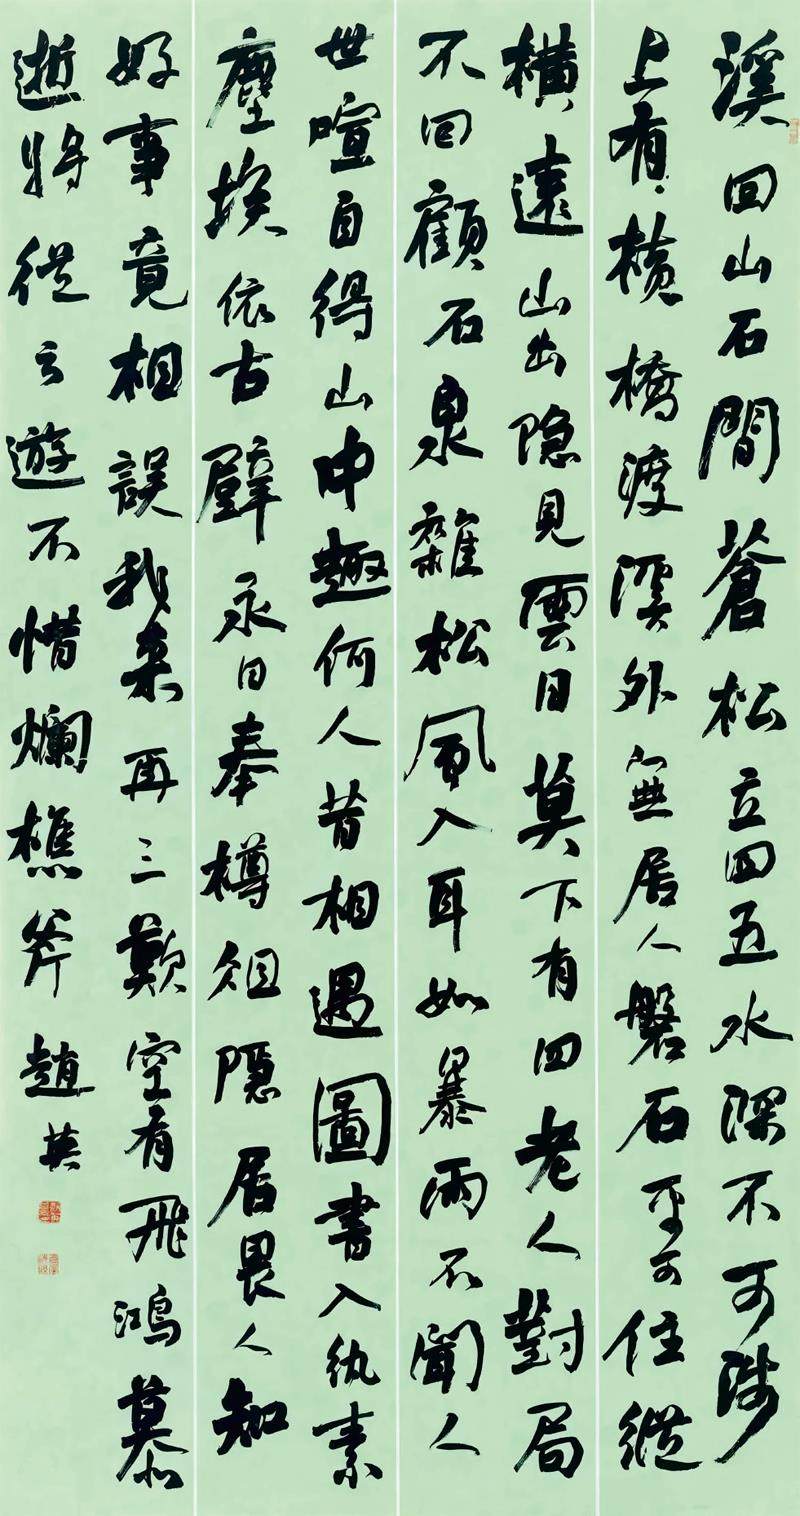 溪回山石間蒼松立四五水深不可涉
上有橫橋渡溪外無居人磐石平可住縱
橫遠山出隐見雲日莫下有四老人對局
不回顧石泉雜松風入耳如暴雨不聞人
世喧自得山中趣何人昔相遇圖書入紈素
塵埃依古壁永日奉樽俎隐居畏人知
好事竟相誤我来再三歎空有飛鴻慕
逝將從之遊不惜爛樵斧 趙英